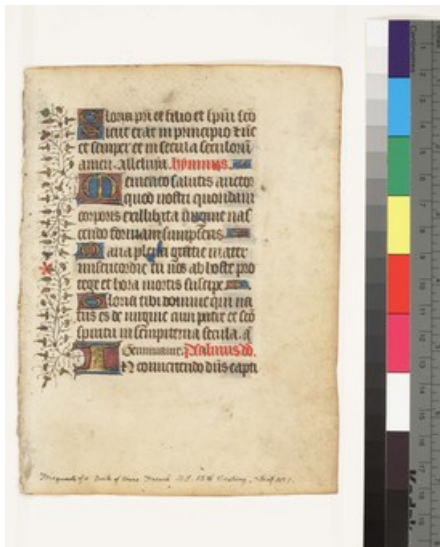 Gloria pri et filio et spiri sco
sicut erat in principio et nuc
et semper et in secula seculorū
amen. alleluya. hymnus.
Memento salutis auctor
quod nostri quondam
corporis ex illibata virgine nas
cendo formam sumpseris
Maria plena gratie mater
misericordie tu nos ab hoste pro
tege et hora mortis suscipe
Gloria tibi domine qui na
tus es de virgine cum patre et sco
spiritu in sempiterna secula. a
Psalmus dd.
In convertendo dñs capti
Book of Hours French MS. 15th Century